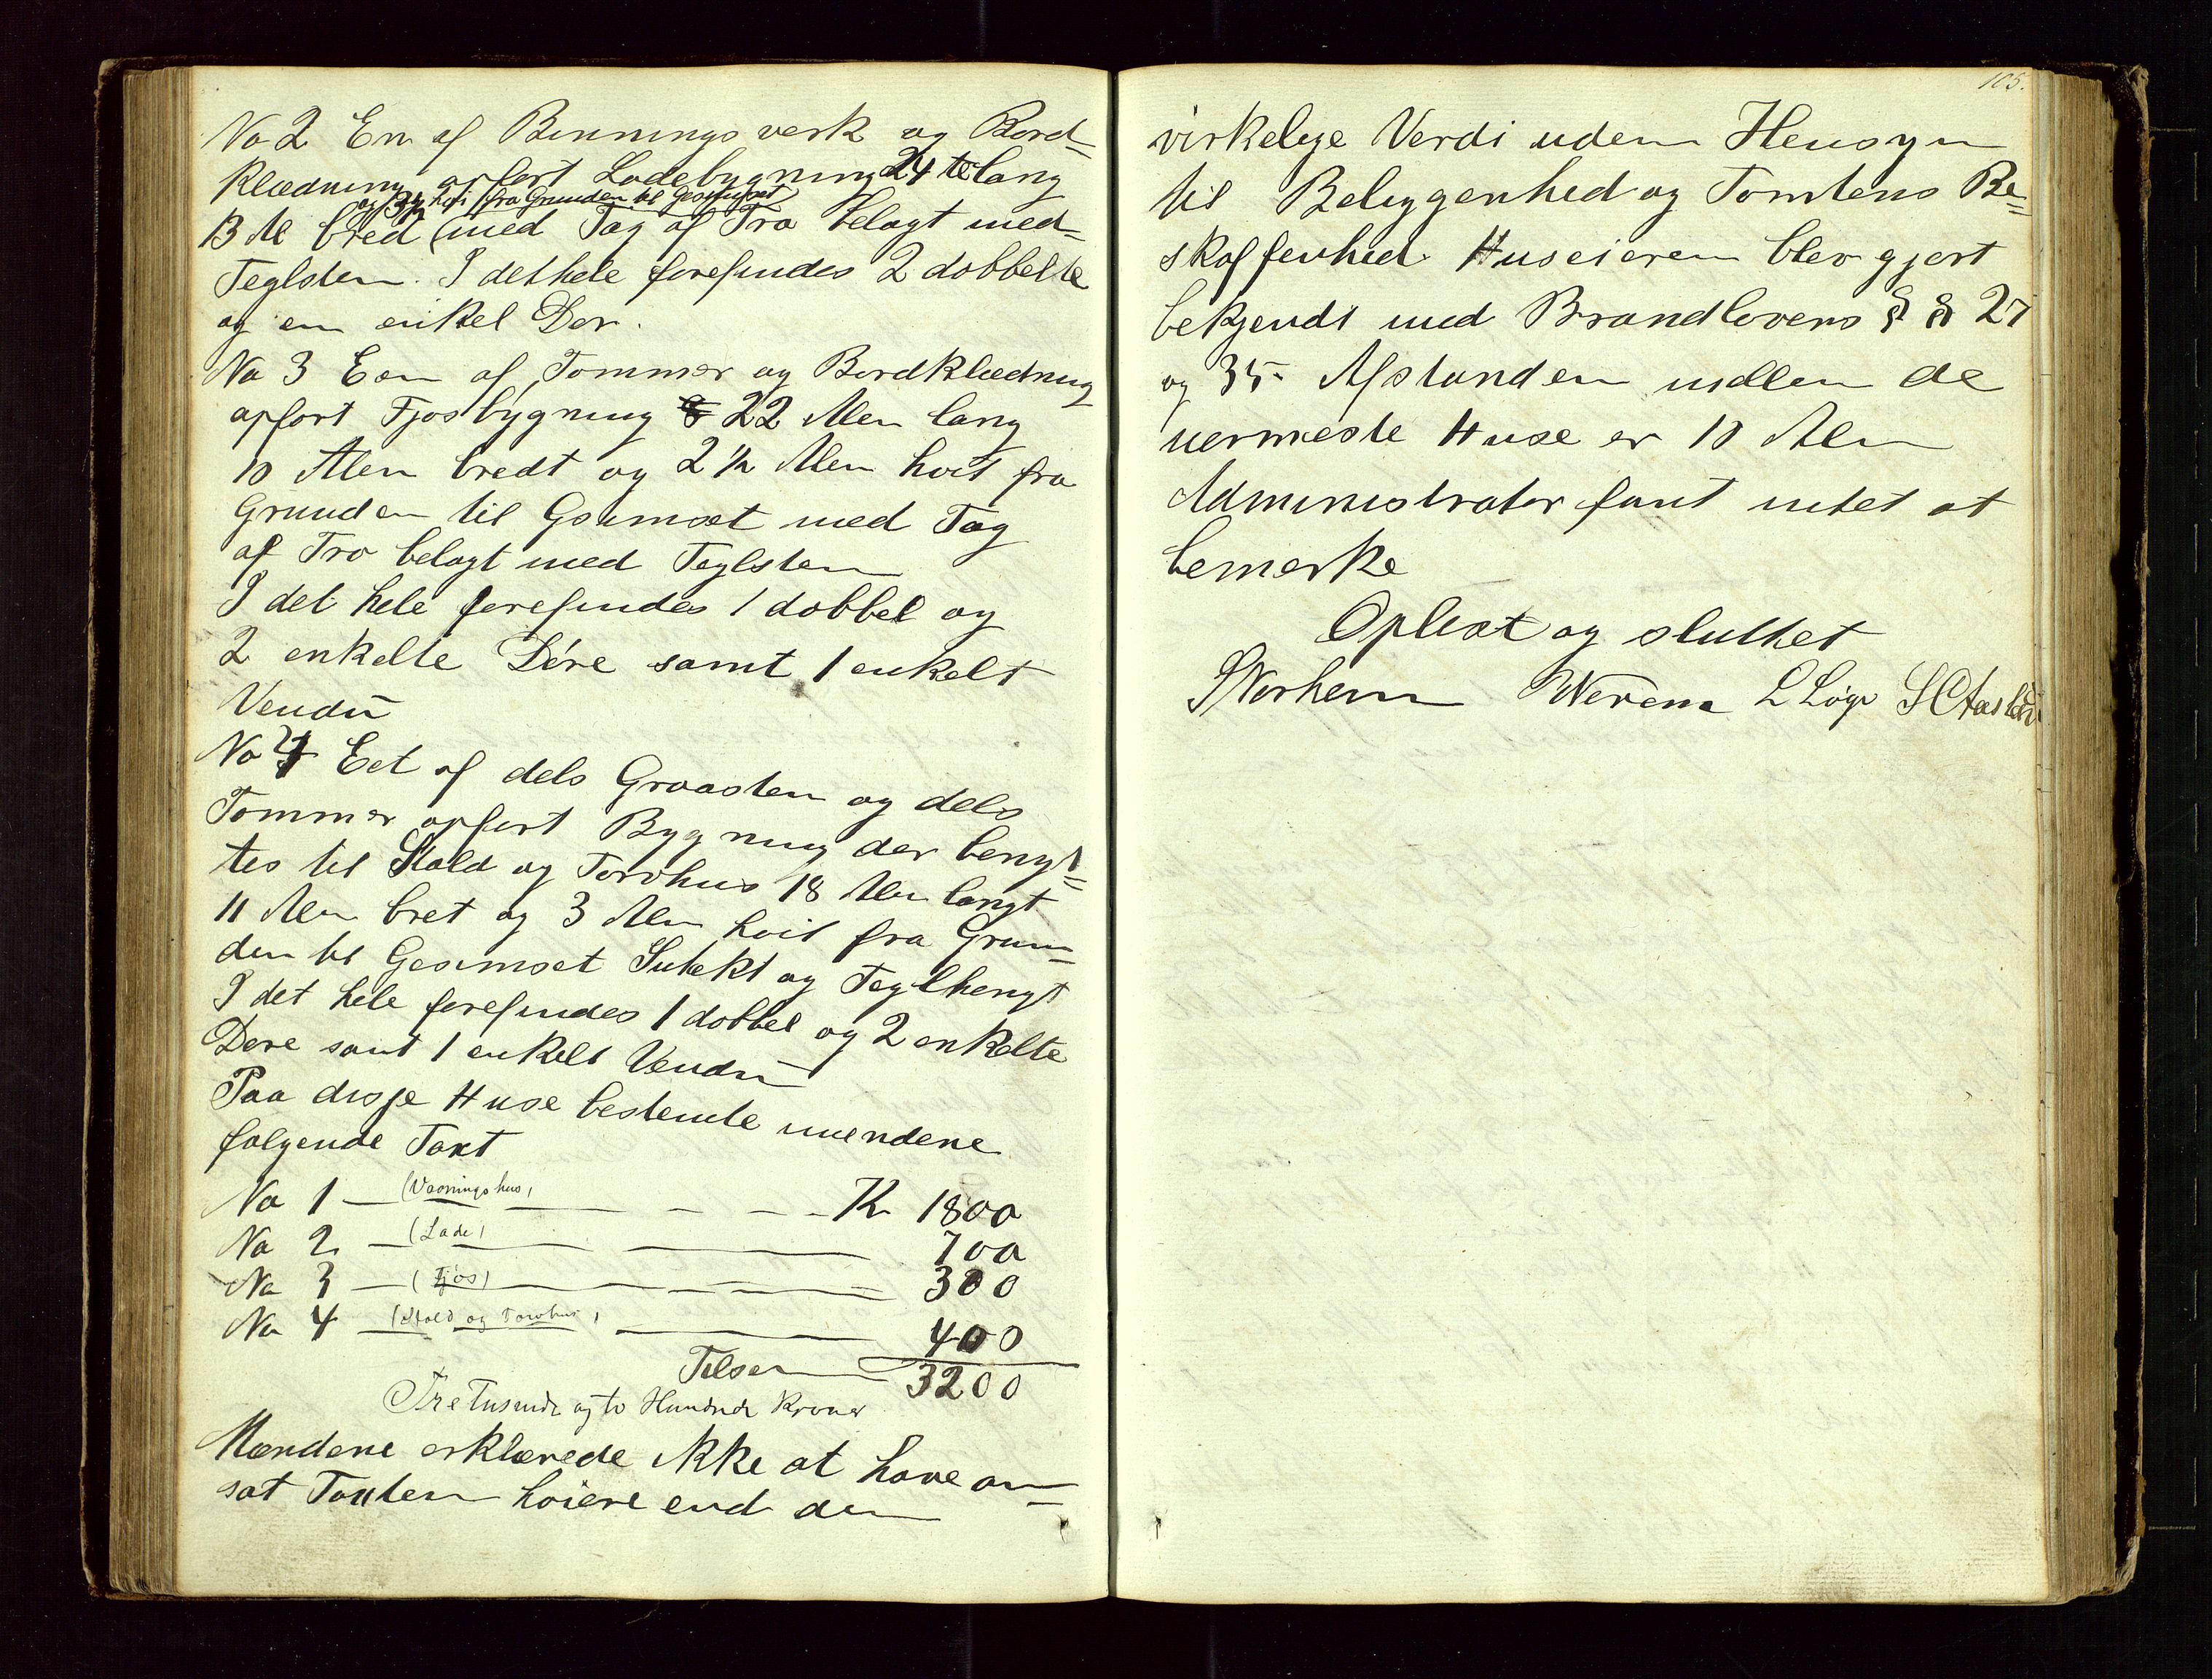 No 2 En af Binnings verk og Bord=
klædning opført Ladebygning 24 Al lang
og 3½ høi fra Grunden til Gesimset
13 Al bred (med Tag af Træ belagt med=
Teglsten. I det hele forefindes 2 dobbelte
og en enkel Dør.
No 3 Een af Tømmer og Bordklædning
opført Fjøsbygning 22 Alen lang
10 Alen bredt og 2 1/2 Alen høit fra
Grunden til Gesimset med Tag
af Træ belagt med Teglsten
I det hele forefindes 1 dobbel og
2 enkelte Døre samt 1 enkelt
Vendu
No 4 Eet af dels Graasten og dels
Tømmer opført Bygning der benyt=
tes til Stald og Torvhus 18 Alen langt
11 Alen bret og 3 Alen høit fra Grun=
den til Gesimset Sutekt og Teglhengt
I det hele forefindes 1 dobbel og 2 enkelte
Døre samt 1 enkelt Vendu
Paa disse Huse bestemte mændene
følgende Taxt
No 1 — (Vaaningshus) — — — Kr 1800
No 2 — (Lade) — — 700
No 3 — (Fjøs) — — — 300
No 4 — (Stald og Torvhus) — 400
Tilsam 3200
Tre Tusinde og to Hundrede Kroner
Mændene erklærede ikke at have an=
sat Taxten høiere end den
105.
virkelige Verdi uden Hensyn
til Beliggenhed og Tomtens Be=
skaffenhed. Huseieren blev gjort
bekjendt med Brandlovens § § 27
og 35. Afstanden mellem de
nermeste Huse er 10 Alen
Administrator fant intet at
bemerke
Oplæst og sluttet
L Løge